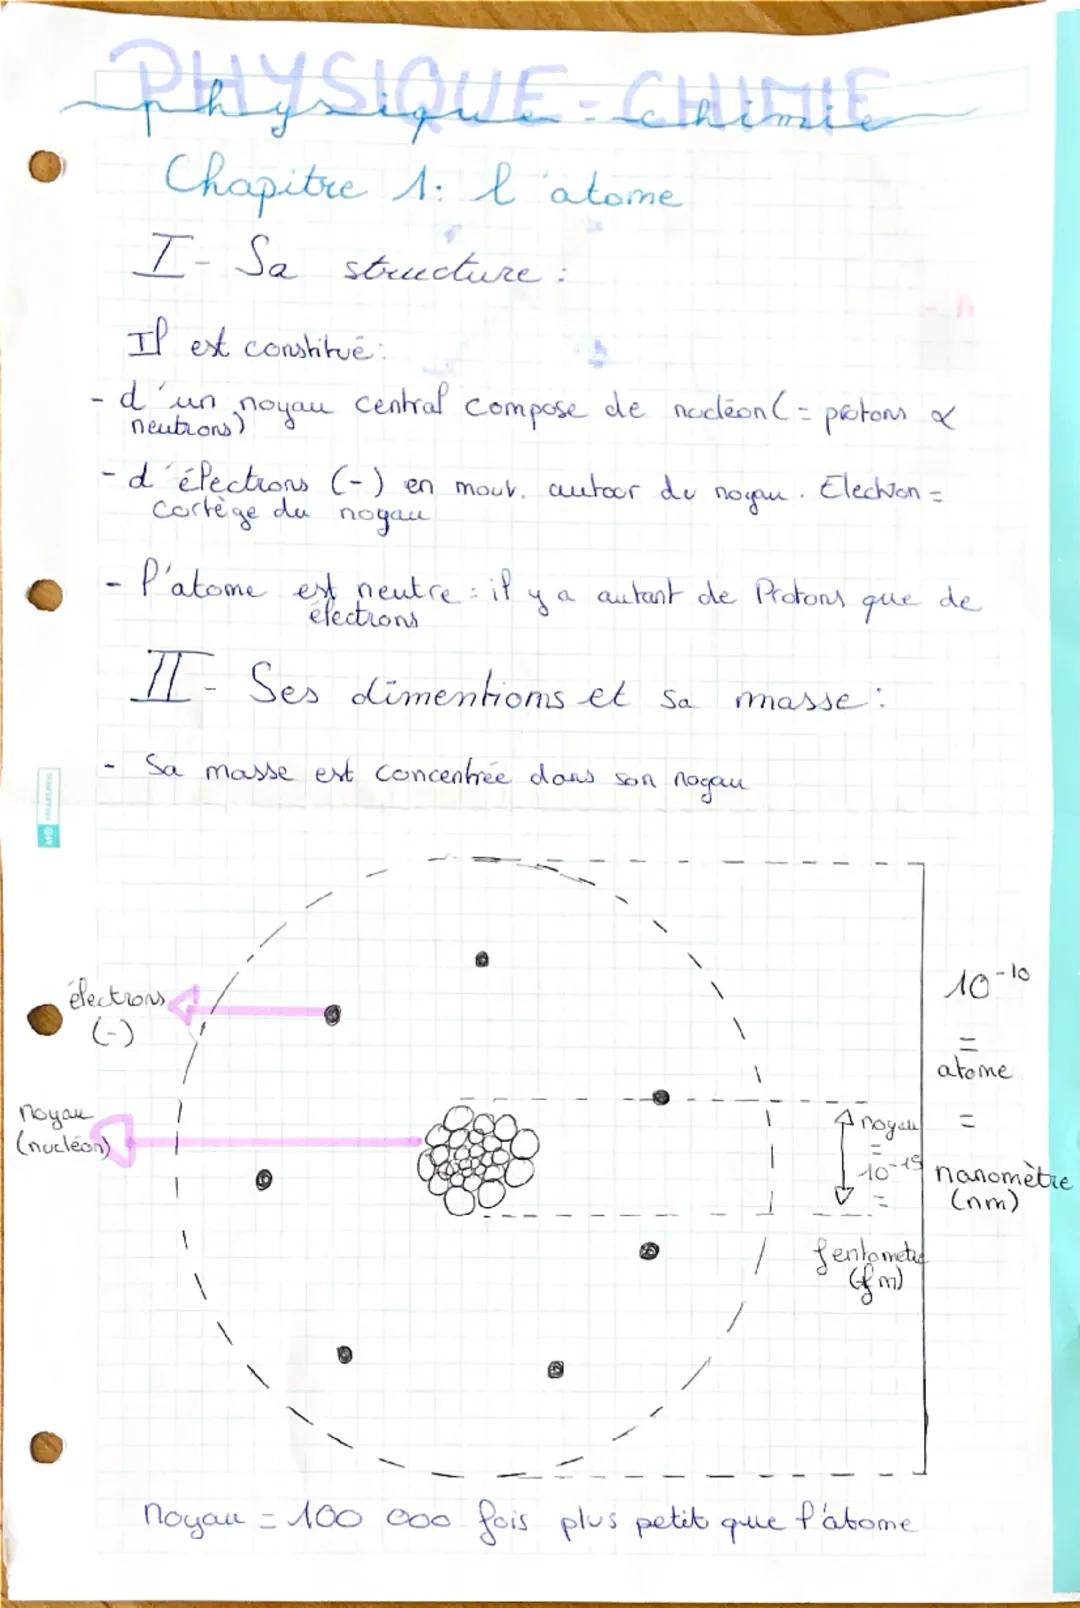 PHYSIQUE-CHIMIE
physique-chimie
Chapitre 1: l'atome
I- Sa structure :
Il est constitué:
- d'un noyau central compose de nucléon (= protons &
neutrons)
- d'électrons (-) en mouv. autour du noyau. Electron =
cortège du noyau
- l'atome est neutre : il y a autant de Protons que de
électrons
II- Ses dimentions et sa masse :
- Sa masse est concentrée dans son noyau
électrons
(-)
noyau
(nucléon)
noyau
=
10⁻¹⁵
=
femtometre
(fm)
10⁻¹⁰
=
atome
=
nanomètre
(nm)
noyau = 100 000 fois plus petit que l'atome